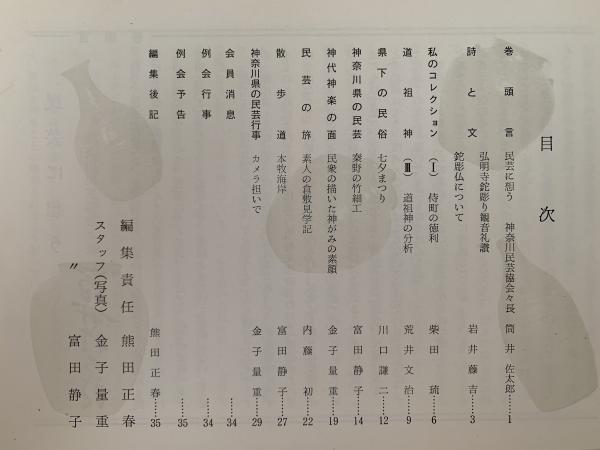 目次
巻頭言 民芸に想う 神奈川民芸協会々長 筒井佐太郎……1
詩と文 弘明寺鉈彫り観音礼讃
鉈彫仏について 岩井藤吉……3
私のコレクション (Ⅰ) 侍町の徳利 柴田琉……6
道祖神 (Ⅲ) 道祖神の分析 荒井文治……9
県下の民俗 七夕まつり 川口謙二……12
神奈川県の民芸 秦野の竹細工 富田静子……14
神代神楽の面 民衆の描いた神がみの素顔 金子量重……19
民芸の旅 素人の倉敷見学記 内藤初……22
散歩道 本牧海岸 富田静子……27
神奈川県の民芸行事 カメラ担いで 金子量重……29
会員消息……34
例会行事……34
例会予告……35
編集後記 熊田正春……35
編集責任 熊田正春
スタッフ(写真) 金子量重
〃 富田静子